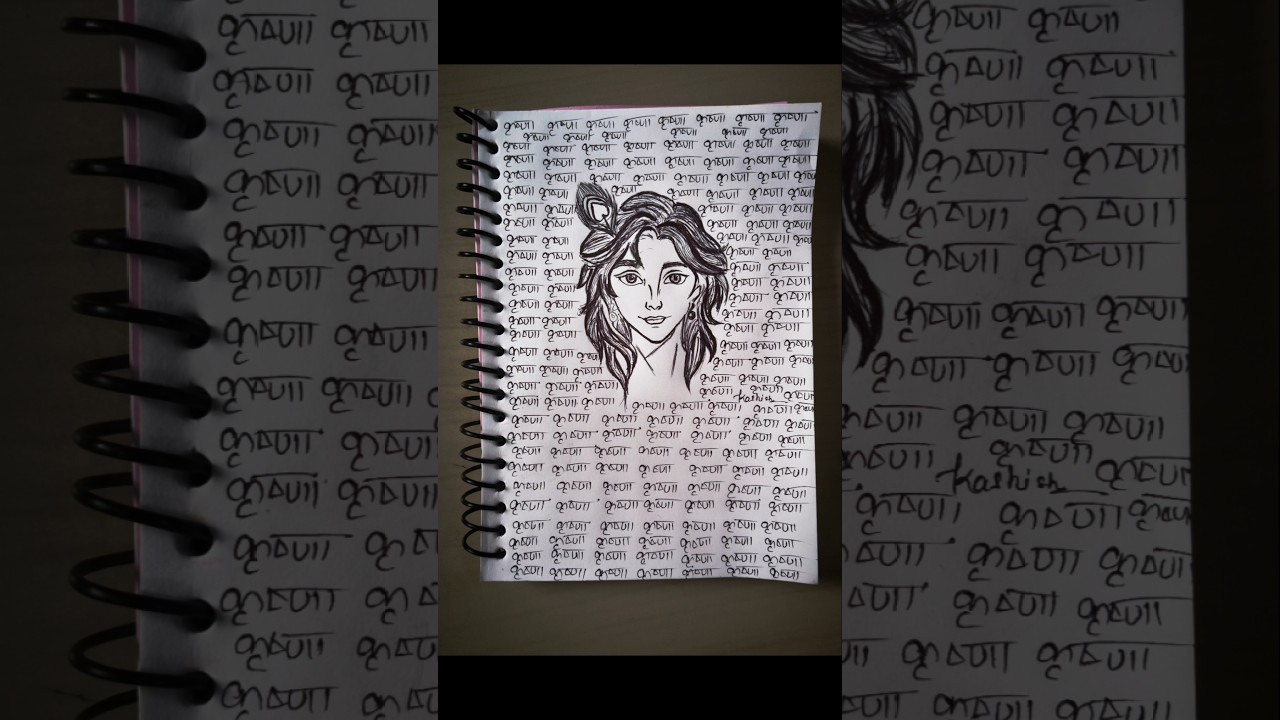 कृष्णा कृष्णा कृष्णा कृष्णा कृष्णा कृष्णा कृष्णा कृष्णा
कृष्णा कृष्णा कृष्णा कृष्णा कृष्णा कृष्णा
कृष्णा कृष्णा कृष्णा कृष्णा कृष्णा कृष्णा कृष्णा कृष्णा
कृष्णा कृष्णा कृष्णा कृष्णा कृष्णा कृष्णा कृष्णा कृष्णा
कृष्णा कृष्णा कृष्णा कृष्णा कृष्णा कृष्णा कृष्णा कृष्णा
कृष्णा कृष्णा कृष्णा कृष्णा कृष्णा कृष्णा कृष्णा
कृष्णा कृष्णा कृष्णा कृष्णा कृष्णा
कृष्णा कृष्णा कृष्णा कृष्णा कृष्णा
कृष्णा कृष्णा कृष्णा कृष्णा
कृष्णा कृष्णा कृष्णा कृष्णा
कृष्णा कृष्णा कृष्णा कृष्णा
कृष्णा कृष्णा कृष्णा कृष्णा
कृष्णा कृष्णा कृष्णा कृष्णा
कृष्णा कृष्णा कृष्णा कृष्णा
कृष्णा कृष्णा कृष्णा कृष्णा
कृष्णा कृष्णा कृष्णा कृष्णा कृष्णा
कृष्णा कृष्णा कृष्णा कृष्णा कृष्णा
कृष्णा कृष्णा कृष्णा कृष्णा कृष्णा कृष्णा
कृष्णा कृष्णा कृष्णा कृष्णा
Kashish
कृष्णा कृष्णा कृष्णा कृष्णा
कृष्णा कृष्णा कृष्णा कृष्णा कृष्णा
कृष्णा कृष्णा कृष्णा कृष्णा कृष्णा कृष्णा कृष्णा
कृष्णा कृष्णा कृष्णा कृष्णा कृष्णा कृष्णा कृष्णा
कृष्णा कृष्णा कृष्णा कृष्णा कृष्णा कृष्णा कृष्णा
कृष्णा कृष्णा कृष्णा कृष्णा कृष्णा कृष्णा कृष्णा
कृष्णा कृष्णा कृष्णा कृष्णा कृष्णा कृष्णा कृष्णा
कृष्णा कृष्णा कृष्णा कृष्णा कृष्णा कृष्णा कृष्णा
कृष्णा कृष्णा कृष्णा कृष्णा कृष्णा कृष्णा कृष्णा
कृष्णा कृष्णा कृष्णा कृष्णा कृष्णा कृष्णा कृष्णा
कृष्णा कृष्णा कृष्णा कृष्णा कृष्णा कृष्णा कृष्णा